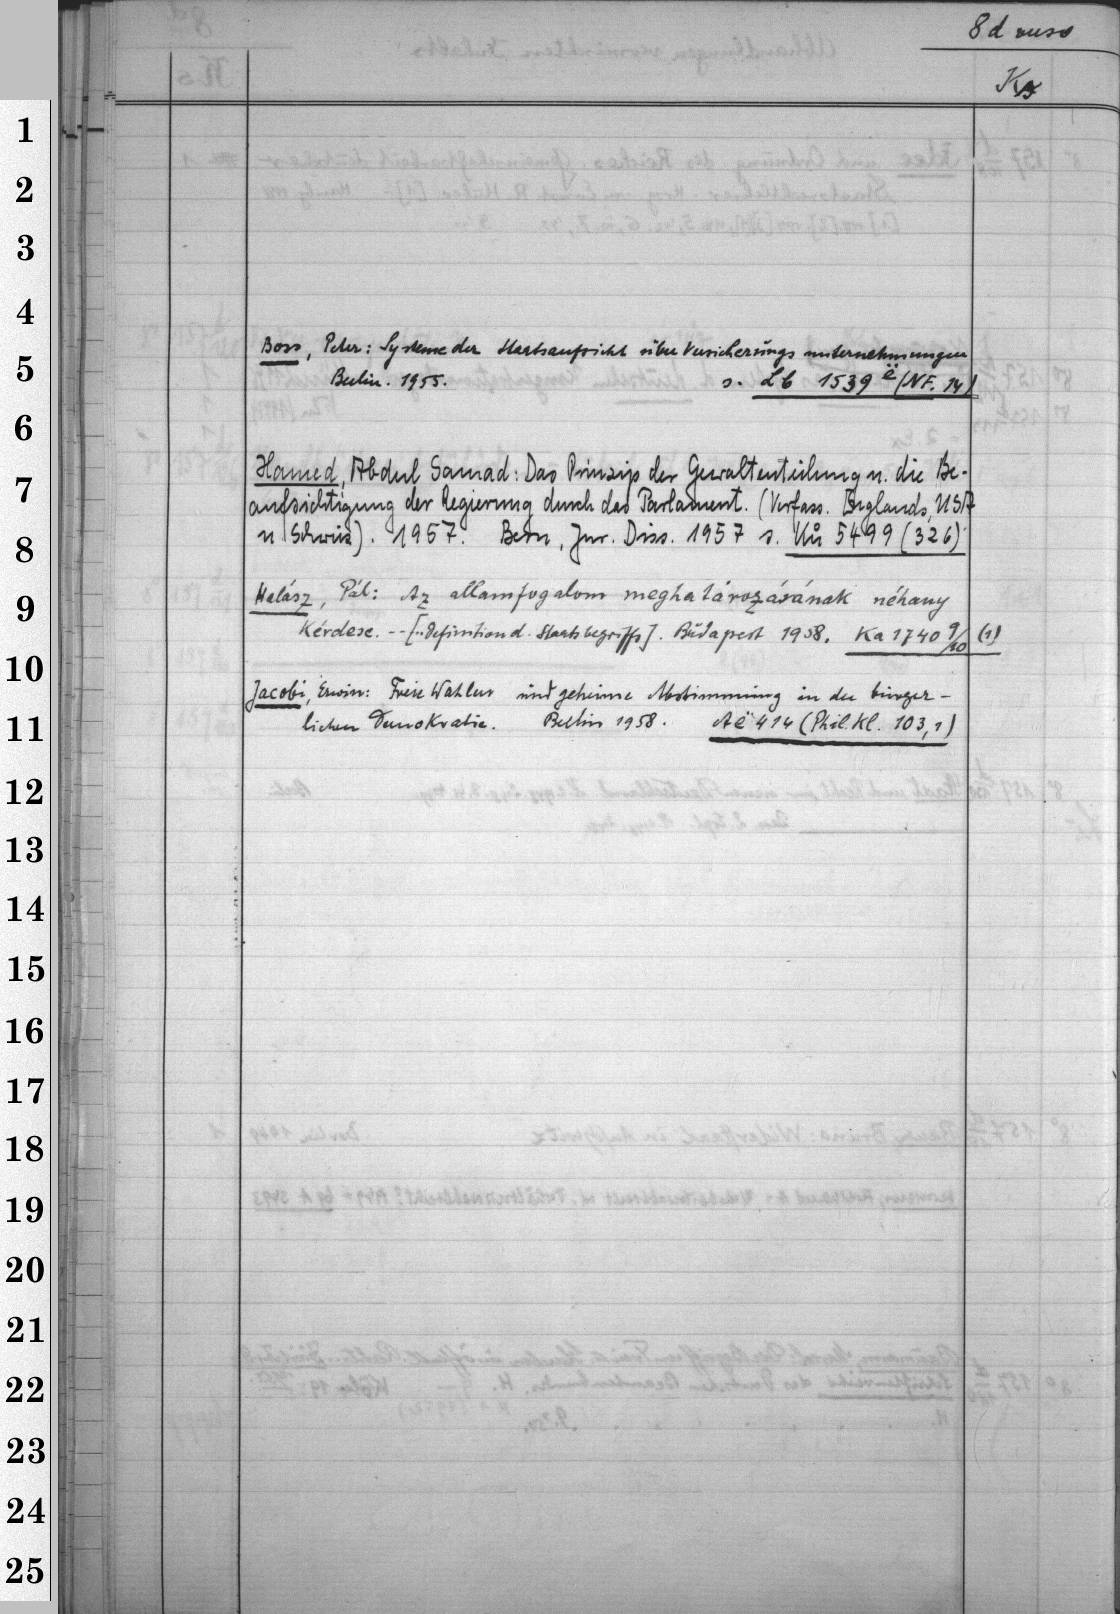 8d
Ks
1
2
3
4
5
6
7
8
9
10
11
12
13
14
15
16
17
18
19
20
21
22
23
24
25
Boss, Peter: Systeme der Staatsaufsicht über Versicherungsunternehmungen
Berlin. 1955. s. Lb 1539 ë (NF. 14)
Hamed, Abdul Samad: Das Prinzip der Gewaltenteilung u. die Be-
aufsichtigung der Regierung durch das Parlament. (Verfass. Englands, USA
u Schweiz). 1957. Bern, Jur. Diss. 1957 s. Uů 5499 (326)
Halász, Pál: Az allamfogalom meghatározásának néhany
Kérdese. -- [..Definition d. Staatsbegriffs]. Budapest 1958. Ka 1740 9/10 (1)
Jacobi, Erwin: Freie Wahlen und geheime Abstimmung in der bürger-
lichen Demokratie. Berlin 1958. Aë 414 (Phil. Kl. 103, 1)